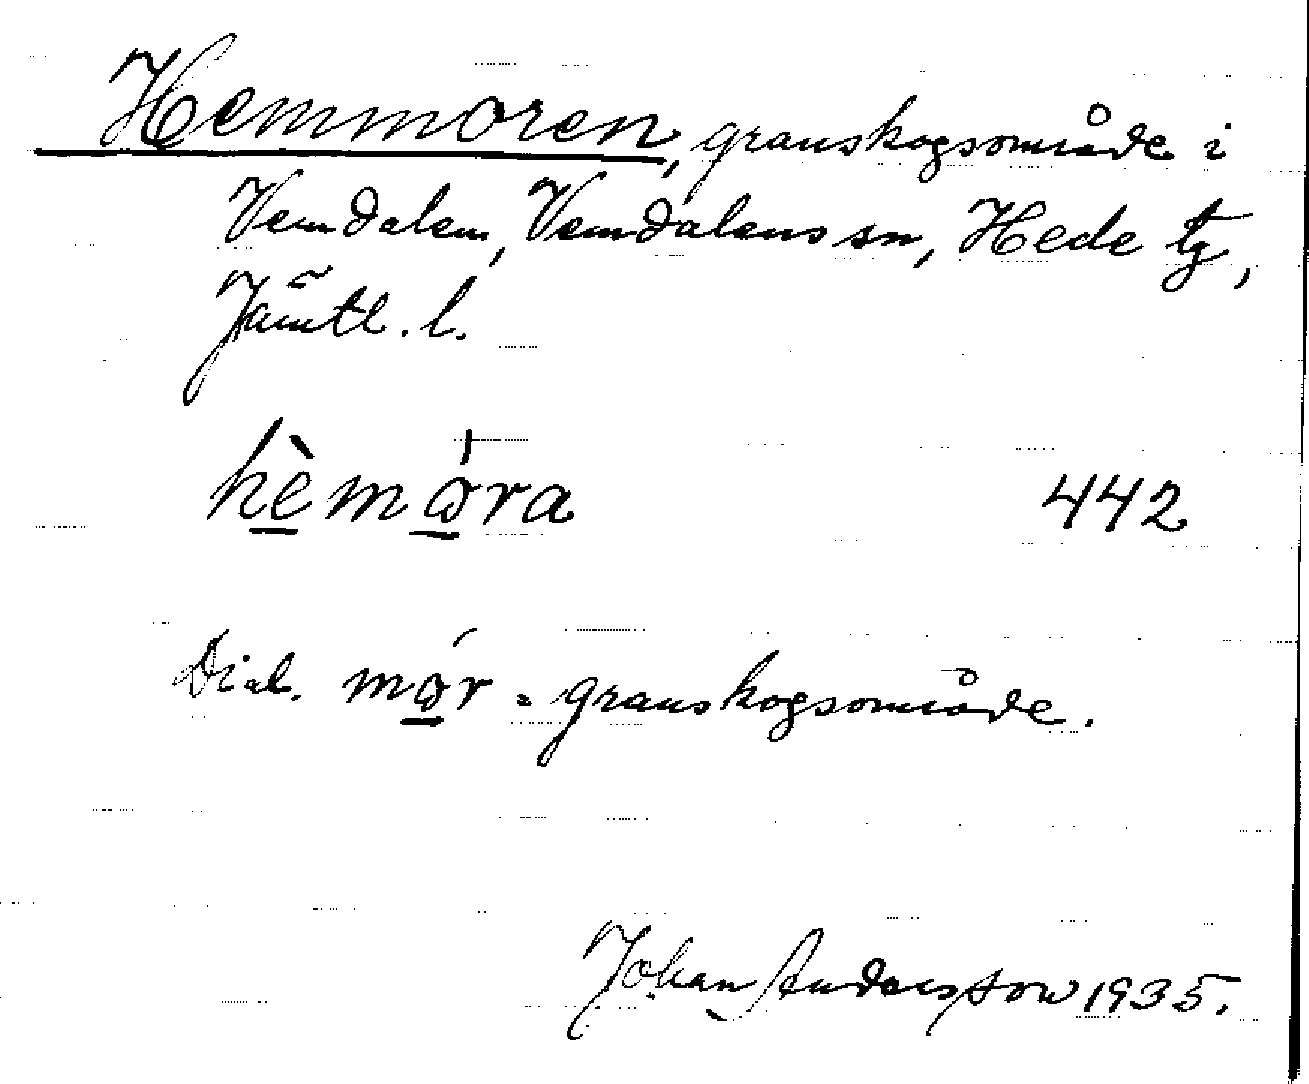 Hemmoren, granskogsområde i
Vemdalen, Vemdalens sn, Hede tg,
Jämtl. l.
hèmåra 442
Dial. mår = granskogsområde.
Johan Andersson 1935.